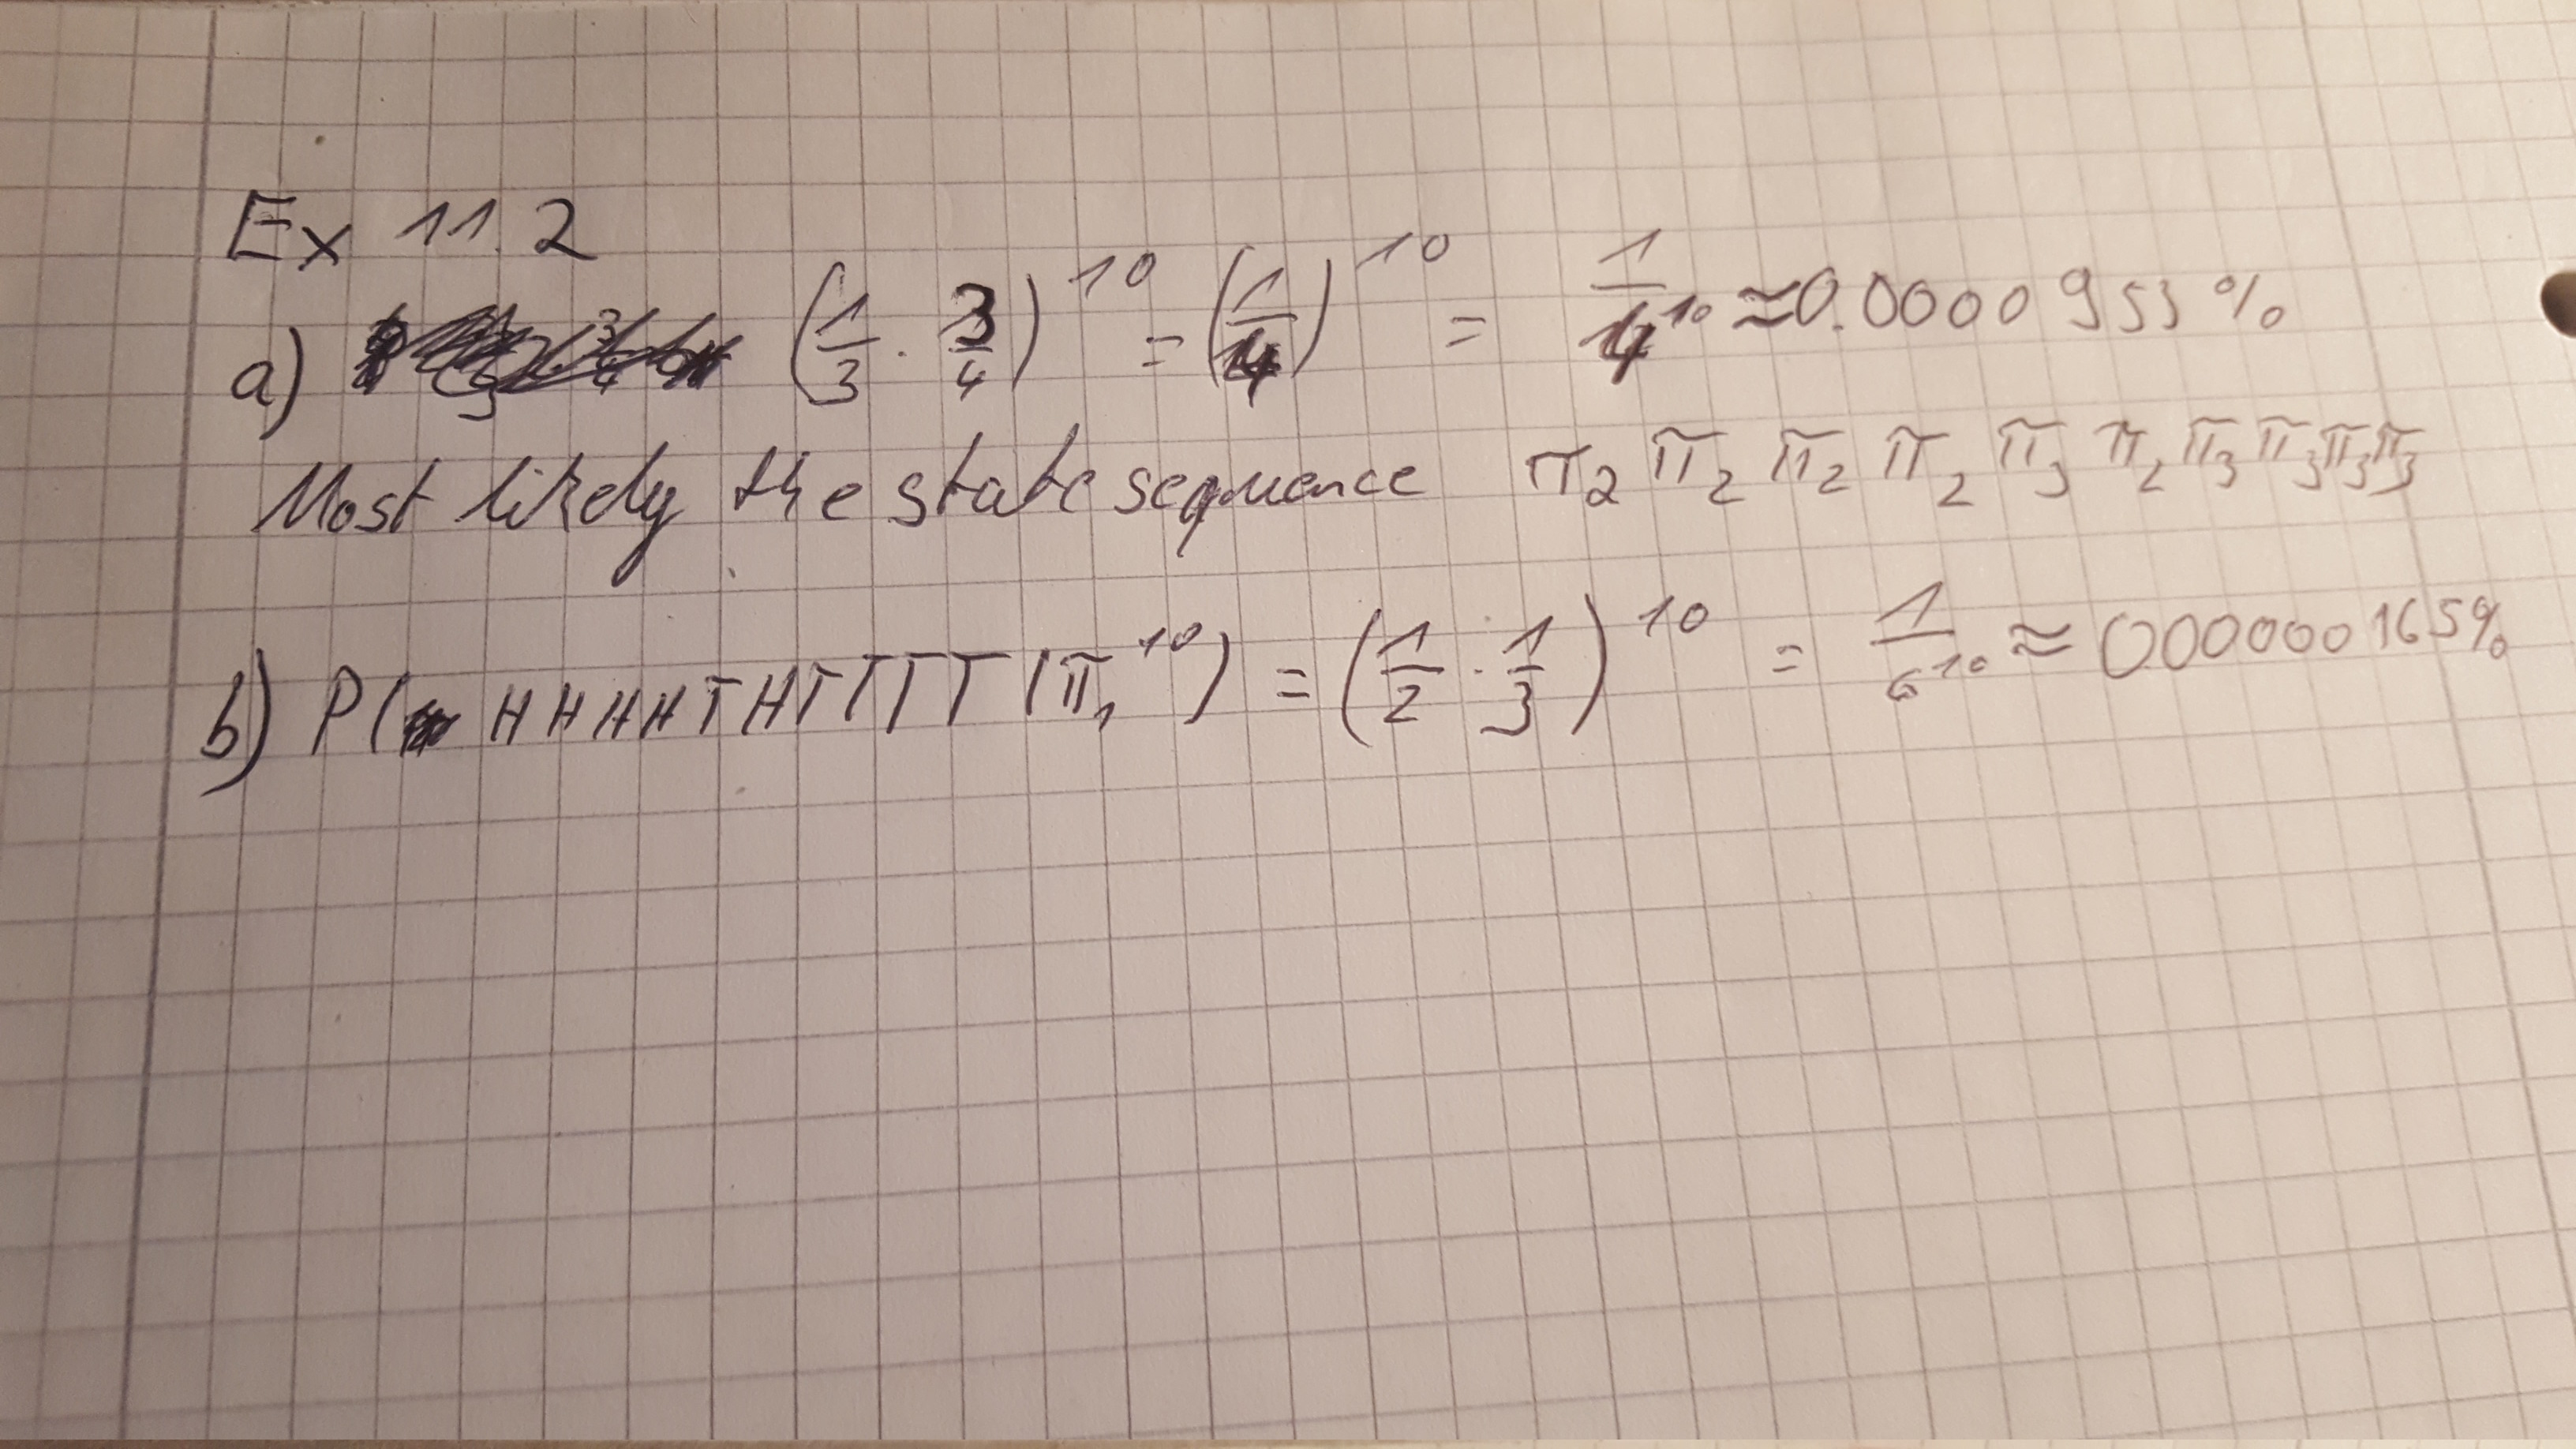 Ex 11.2
a) (1/3 · 3/4)^10 = (1/4)^10 = 1/4^10 ≈ 0.0000953 %
Most likely the state sequence π₂ π₂ π₂ π₂ π₃ π₂ π₃ π₃ π₃ π₃
b) P(HHHHTHTTTT|π₁^10) = (1/2 · 1/3)^10 = 1/6^10 ≈ 0000000165%